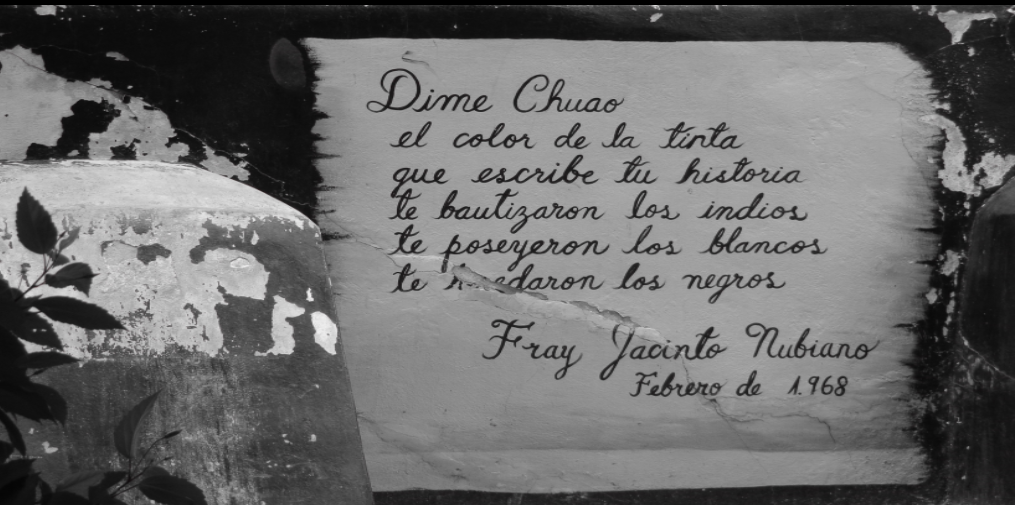 Dime Chuao
el color de la tinta
que escribe tu historia
te bautizaron los indios
te poseyeron los blancos
te los negros
Fray Jacinto Nubiano
Febrero de 1.968